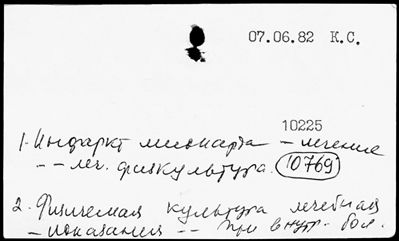 07.06.82 К.С.
10225
1. Инфаркт миокарда – лечение
– – леч. физкультура. 10769
2. Физическая культура лечебная
– показания – – при внутр. бол.